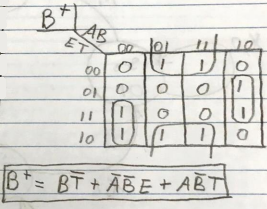 B⁺ AB
ET 00 01 11 10
00 0 1 1 0
01 0 0 0 1
11 1 0 0 1
10 1 1 1 0
B⁺ = BT̅ + A̅B̅E + AB̅T